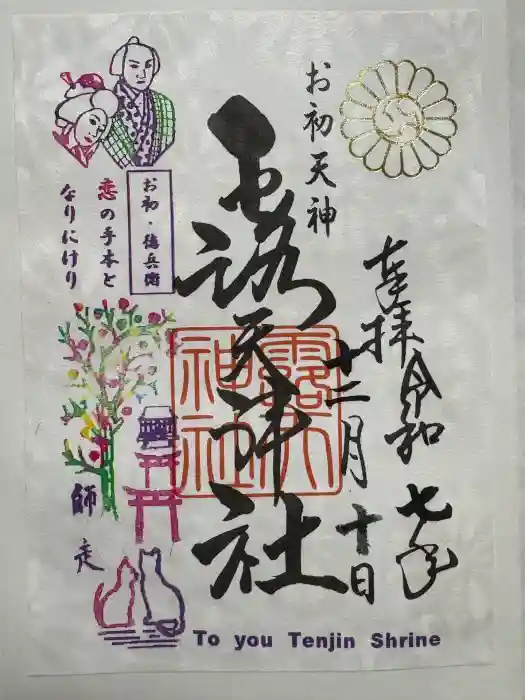 お初天神
奉拝
令和七年
十二月十日
露天神社
露天神社
お初・徳兵衛
恋の手本と
なりにけり
師走
To you Tenjin Shrine